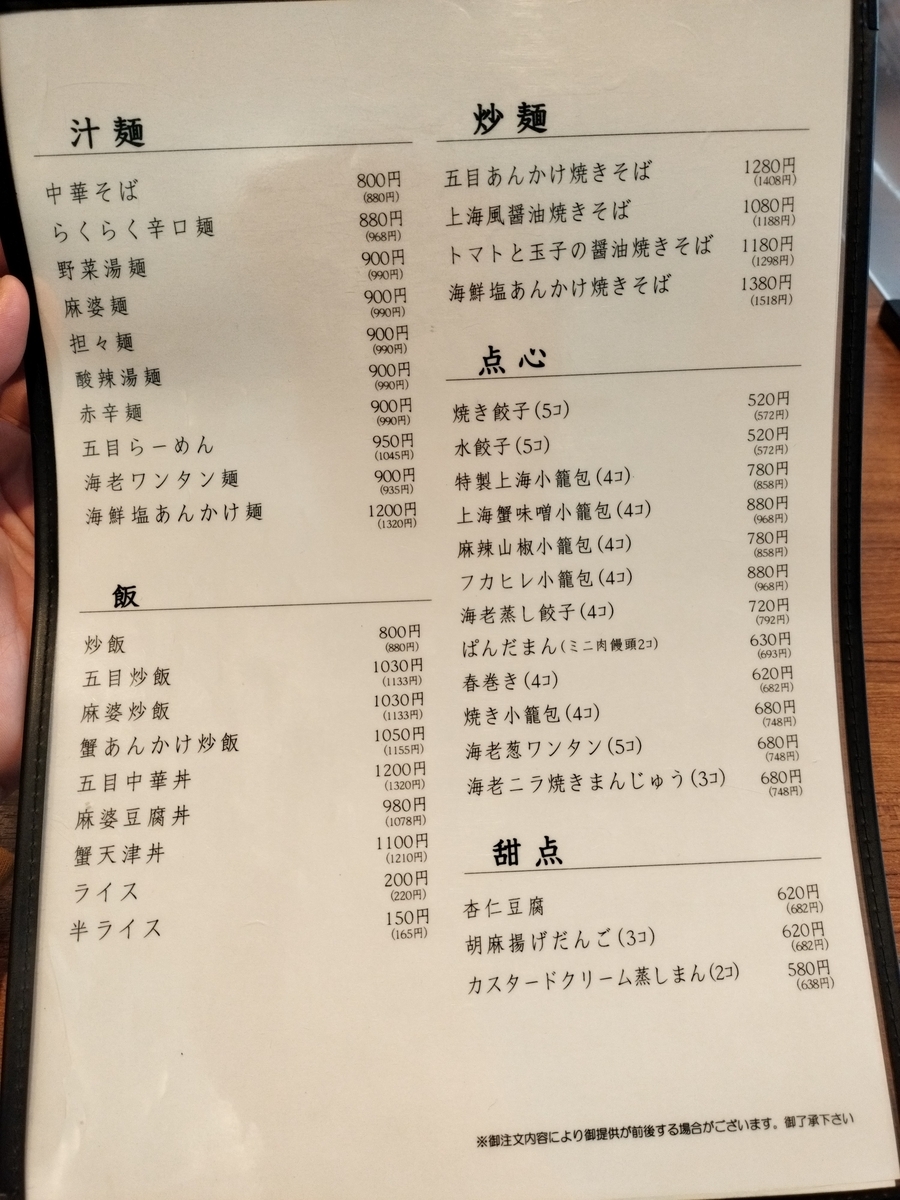 汁麺
中華そば 800円
(880円)
らくらく辛口麺 880円
(968円)
野菜湯麺 900円
(990円)
麻婆麺 900円
(990円)
担々麺 900円
(990円)
酸辣湯麺 900円
(990円)
赤辛麺 900円
(990円)
五目らーめん 950円
(1045円)
海老ワンタン麺 900円
(935円)
海鮮塩あんかけ麺 1200円
(1320円)
飯
炒飯 800円
(880円)
五目炒飯 1030円
(1133円)
麻婆炒飯 1030円
(1133円)
蟹あんかけ炒飯 1050円
(1155円)
五目中華丼 1200円
(1320円)
麻婆豆腐丼 980円
(1078円)
蟹天津丼 1100円
(1210円)
ライス 200円
(220円)
半ライス 150円
(165円)
炒麺
五目あんかけ焼きそば 1280円
(1408円)
上海風醤油焼きそば 1080円
(1188円)
トマトと玉子の醤油焼きそば 1180円
(1298円)
海鮮塩あんかけ焼きそば 1380円
(1518円)
点心
焼き餃子(5コ) 520円
(572円)
水餃子(5コ) 520円
(572円)
特製上海小籠包(4コ) 780円
(858円)
上海蟹味噌小籠包(4コ) 880円
(968円)
麻辣山椒小籠包(4コ) 780円
(858円)
フカヒレ小籠包(4コ) 880円
(968円)
海老蒸し餃子(4コ) 720円
(792円)
ぱんだまん(ミニ肉饅頭2コ) 630円
(693円)
春巻き(4コ) 620円
(682円)
焼き小籠包(4コ) 680円
(748円)
海老葱ワンタン(5コ) 680円
(748円)
海老ニラ焼きまんじゅう(3コ) 680円
(748円)
甜点
杏仁豆腐 620円
(682円)
胡麻揚げだんご(3コ) 620円
(682円)
カスタードクリーム蒸しまん(2コ) 580円
(638円)
※御注文内容により御提供が前後する場合がございます。御了承下さい